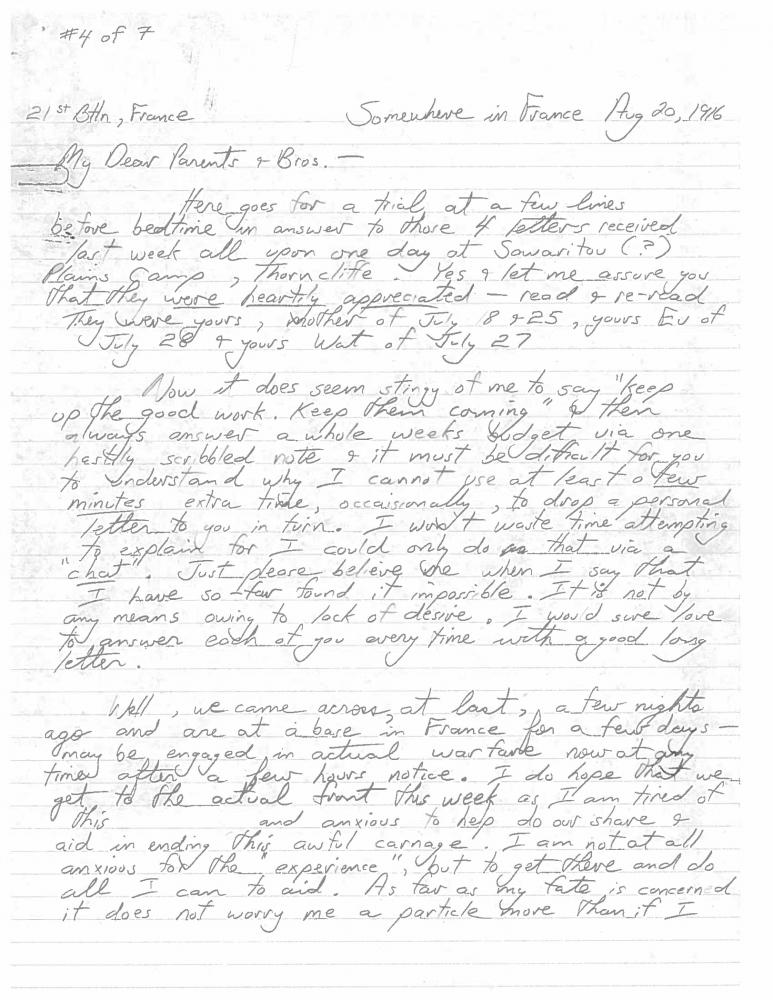 #4 of 7
21st Bttn, France Somewhere in France Aug 20, 1916
My Dear Parents & Bros. —
Here goes for a trial, at a few lines
before bedtime in answer to those 4 letters received
last week all upon one day at Sawaritou (?)
Plains Camp, Thorncliffe. Yes & let me assure you
that they were heartily appreciated — read & re-read
They were yours, mother of July 8 & 25, yours Ev of
July 28 & yours Wat of July 27
Now it does seem stingy of me to say "keep
up the good work. Keep them coming" & then
always answer a whole weeks budget via one
hastily scribbled note & it must be difficult for you
to understand why I cannot use at least a few
minutes extra time, occaisionally, to drop a personal
letter to you in turn. I won't waste time attempting
to explain for I could only do that via a
"chat". Just please believe me when I say that
I have so far found it impossible. It is not by
any means owing to lack of desire. I would sure love
to answer each of you every time with a good long
letter.
Well, we came across, at last, a few nights
ago and are at a base in France for a few days —
may be engaged in actual warfare now at any
time after a few hours notice. I do hope that we
get to the actual front this week as I am tired of
this and anxious to help do our share &
aid in ending this awful carnage. I am not at all
anxious for the "experience", but to get there and do
all I can to aid. As far as my fate is concerned
it does not worry me a particle more than if I